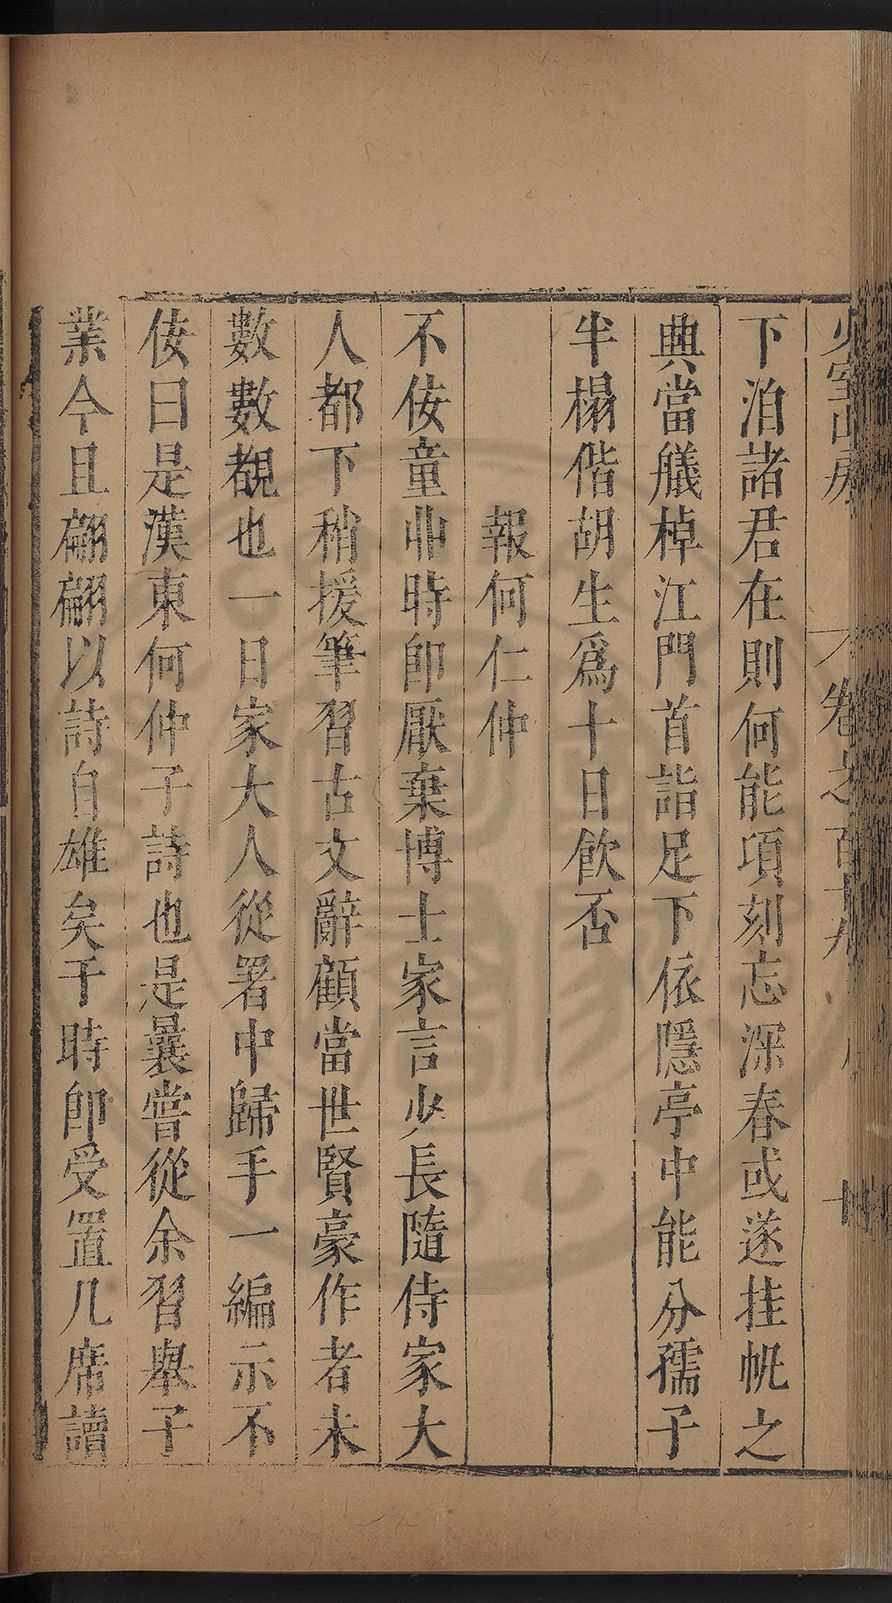 少室山房 卷之百十九
下泊諸君在則何能項刻忘深春或遂挂帆之
典當艤棹江門首詣足下依隱亭中能分孺子
半榻偕胡生爲十日飲否
報何仁仲
不佞童丱時卽厭棄博士家言少長隨侍家大
人都下稍援筆習古文辭顧當世賢豪作者未
數數覩也一日家大人從署中歸手一編示不
佞曰是漢東何仲子詩也是曩嘗從余習舉子
業今且翩翩以詩自雄矣于時卽受置几席讀